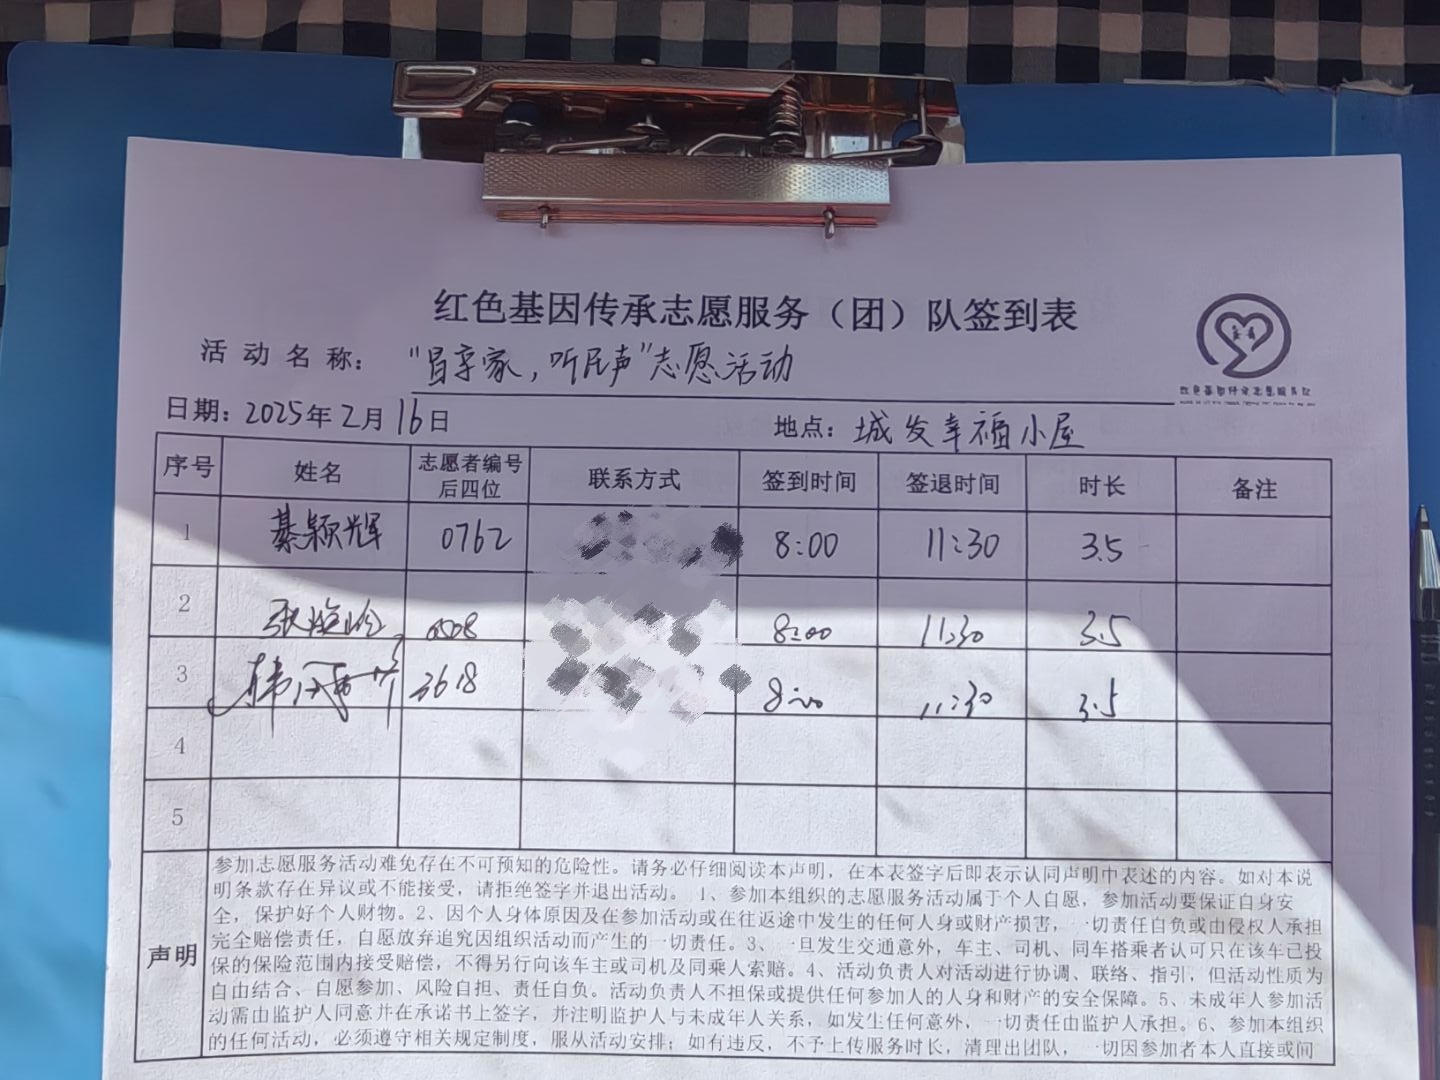 红色基因传承志愿服务（团）队签到表
活动名称：“冒享家，听民声”志愿活动
日期：2025年2月16日 地点：城发幸福小屋
序号 姓名 志愿者编号后四位 联系方式 签到时间 签退时间 时长 备注
1 綦颖辉 0762 8:00 11:30 3.5
2 0508 8:00 11:30 3.5
3 3618 8:00 11:30 3.5
4
5
声明
参加志愿服务活动难免存在不可预知的危险性。请务必仔细阅读本声明，在本表签字后即表示认同声明中表述的内容。如对本说
明条款存在异议或不能接受，请拒绝签字并退出活动。1、参加本组织的志愿服务活动属于个人自愿，参加活动要保证自身安
全，保护好个人财物。2、因个人身体原因及在参加活动或在往返途中发生的任何人身或财产损害，一切责任自负或由侵权人承担
完全赔偿责任，自愿放弃追究因组织活动而产生的一切责任。3、一旦发生交通意外，车主、司机、同车搭乘者认可只在该车已投
保的保险范围内接受赔偿，不得另行向该车主或司机及同乘人索赔。4、活动负责人对活动进行协调、联络、指引，但活动性质为
自由结合、自愿参加、风险自担、责任自负。活动负责人不担保或提供任何参加人的人身和财产的安全保障。5、未成年人参加活
动需由监护人同意并在承诺书上签字，并注明监护人与未成年人关系，如发生任何意外，一切责任由监护人承担。6、参加本组织
的任何活动，必须遵守相关规定制度，服从活动安排；如有违反，不予上传服务时长，清理出团队，一切因参加者本人直接或间